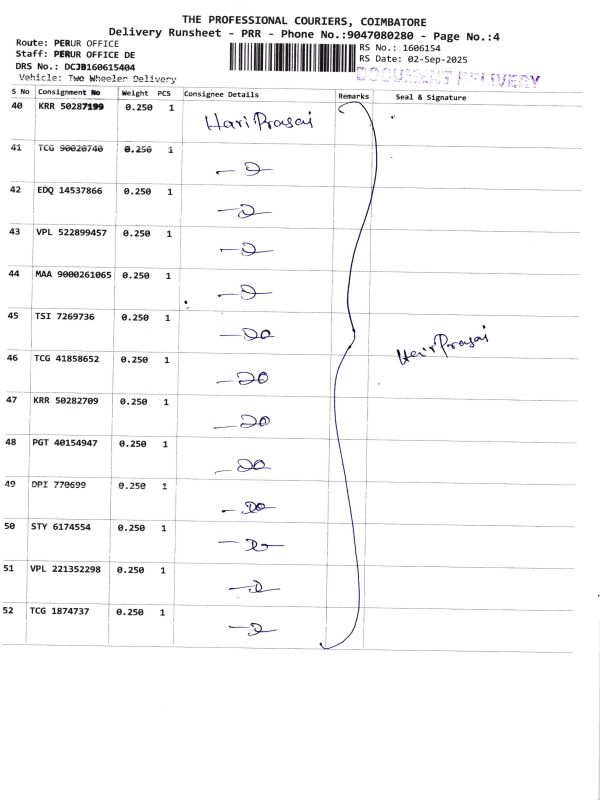 THE PROFESSIONAL COURIERS, COIMBATORE
Delivery Runsheet - PRR - Phone No.:9047080280 - Page No.:4
Route: PERUR OFFICE
Staff: PERUR OFFICE DE
DRS No.: DCJB160615404
Vehicle: Two Wheeler Delivery
RS No.: 1606154
RS Date: 02-Sep-2025
DOCUMENT DELIVERY
S No Consignment No Weight PCS Consignee Details Remarks Seal & Signature
40 KRR 50287199 0.250 1 Hari Prasai
41 TCG 90020740 0.250 1
42 EDQ 14537866 0.250 1
43 VPL 522899457 0.250 1
44 MAA 9000261065 0.250 1
45 TSI 7269736 0.250 1
Hari Prasai
46 TCG 41858652 0.250 1
47 KRR 50282709 0.250 1
48 PGT 40154947 0.250 1
49 DPI 770699 0.250 1
50 STY 6174554 0.250 1
51 VPL 221352298 0.250 1
52 TCG 1874737 0.250 1